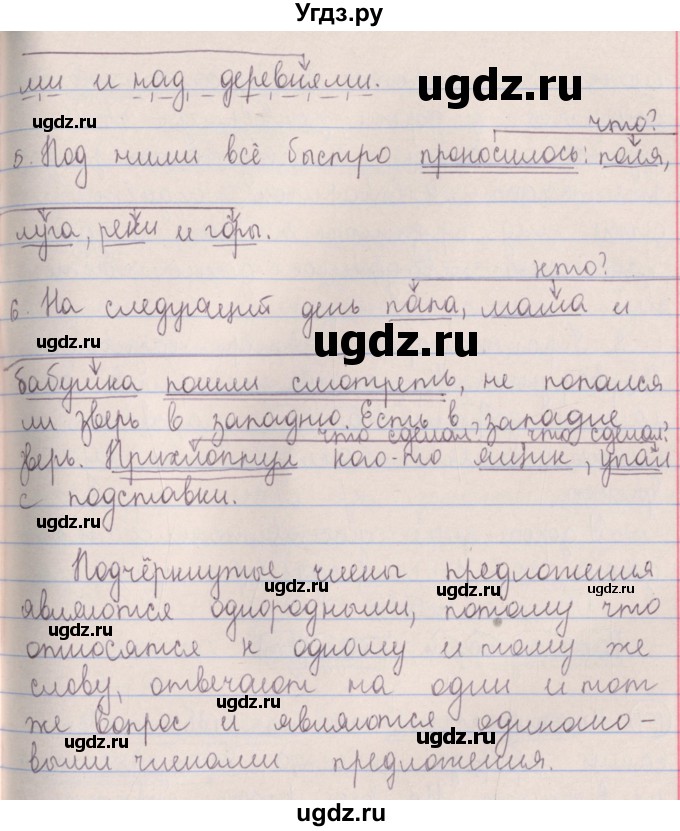 Угдз.ру
ми и над деревнями.
ugdz.ru
ugdz.ru
что?
5. Под ними всё быстро проносилось: поля,
луга, реки и горы.
ugdz.ru
кто?
6. На следующий день папа, мама и
ugdz.ru
ugdz.ru
бабушка пошли смотреть, не попался
ugdz.ru
ли зверь в западню. Есть в западне
что сделал? что сделал?
зверь. Прихлопнул кого-то ящик, упал
ugdz.ru
ugdz.ru
с подставки.
ugdz.ru
Подчёркнутые члены предложения
ugdz.ru ugdz.ru ugdz.ru
являются однородными, потому что
ugdz.ru
относятся к одному и тому же
слову, отвечают на один и тот
же вопрос и являются одинако-
ugdz.ru ugdz.ru
выми членами предложения.
ugdz.ru